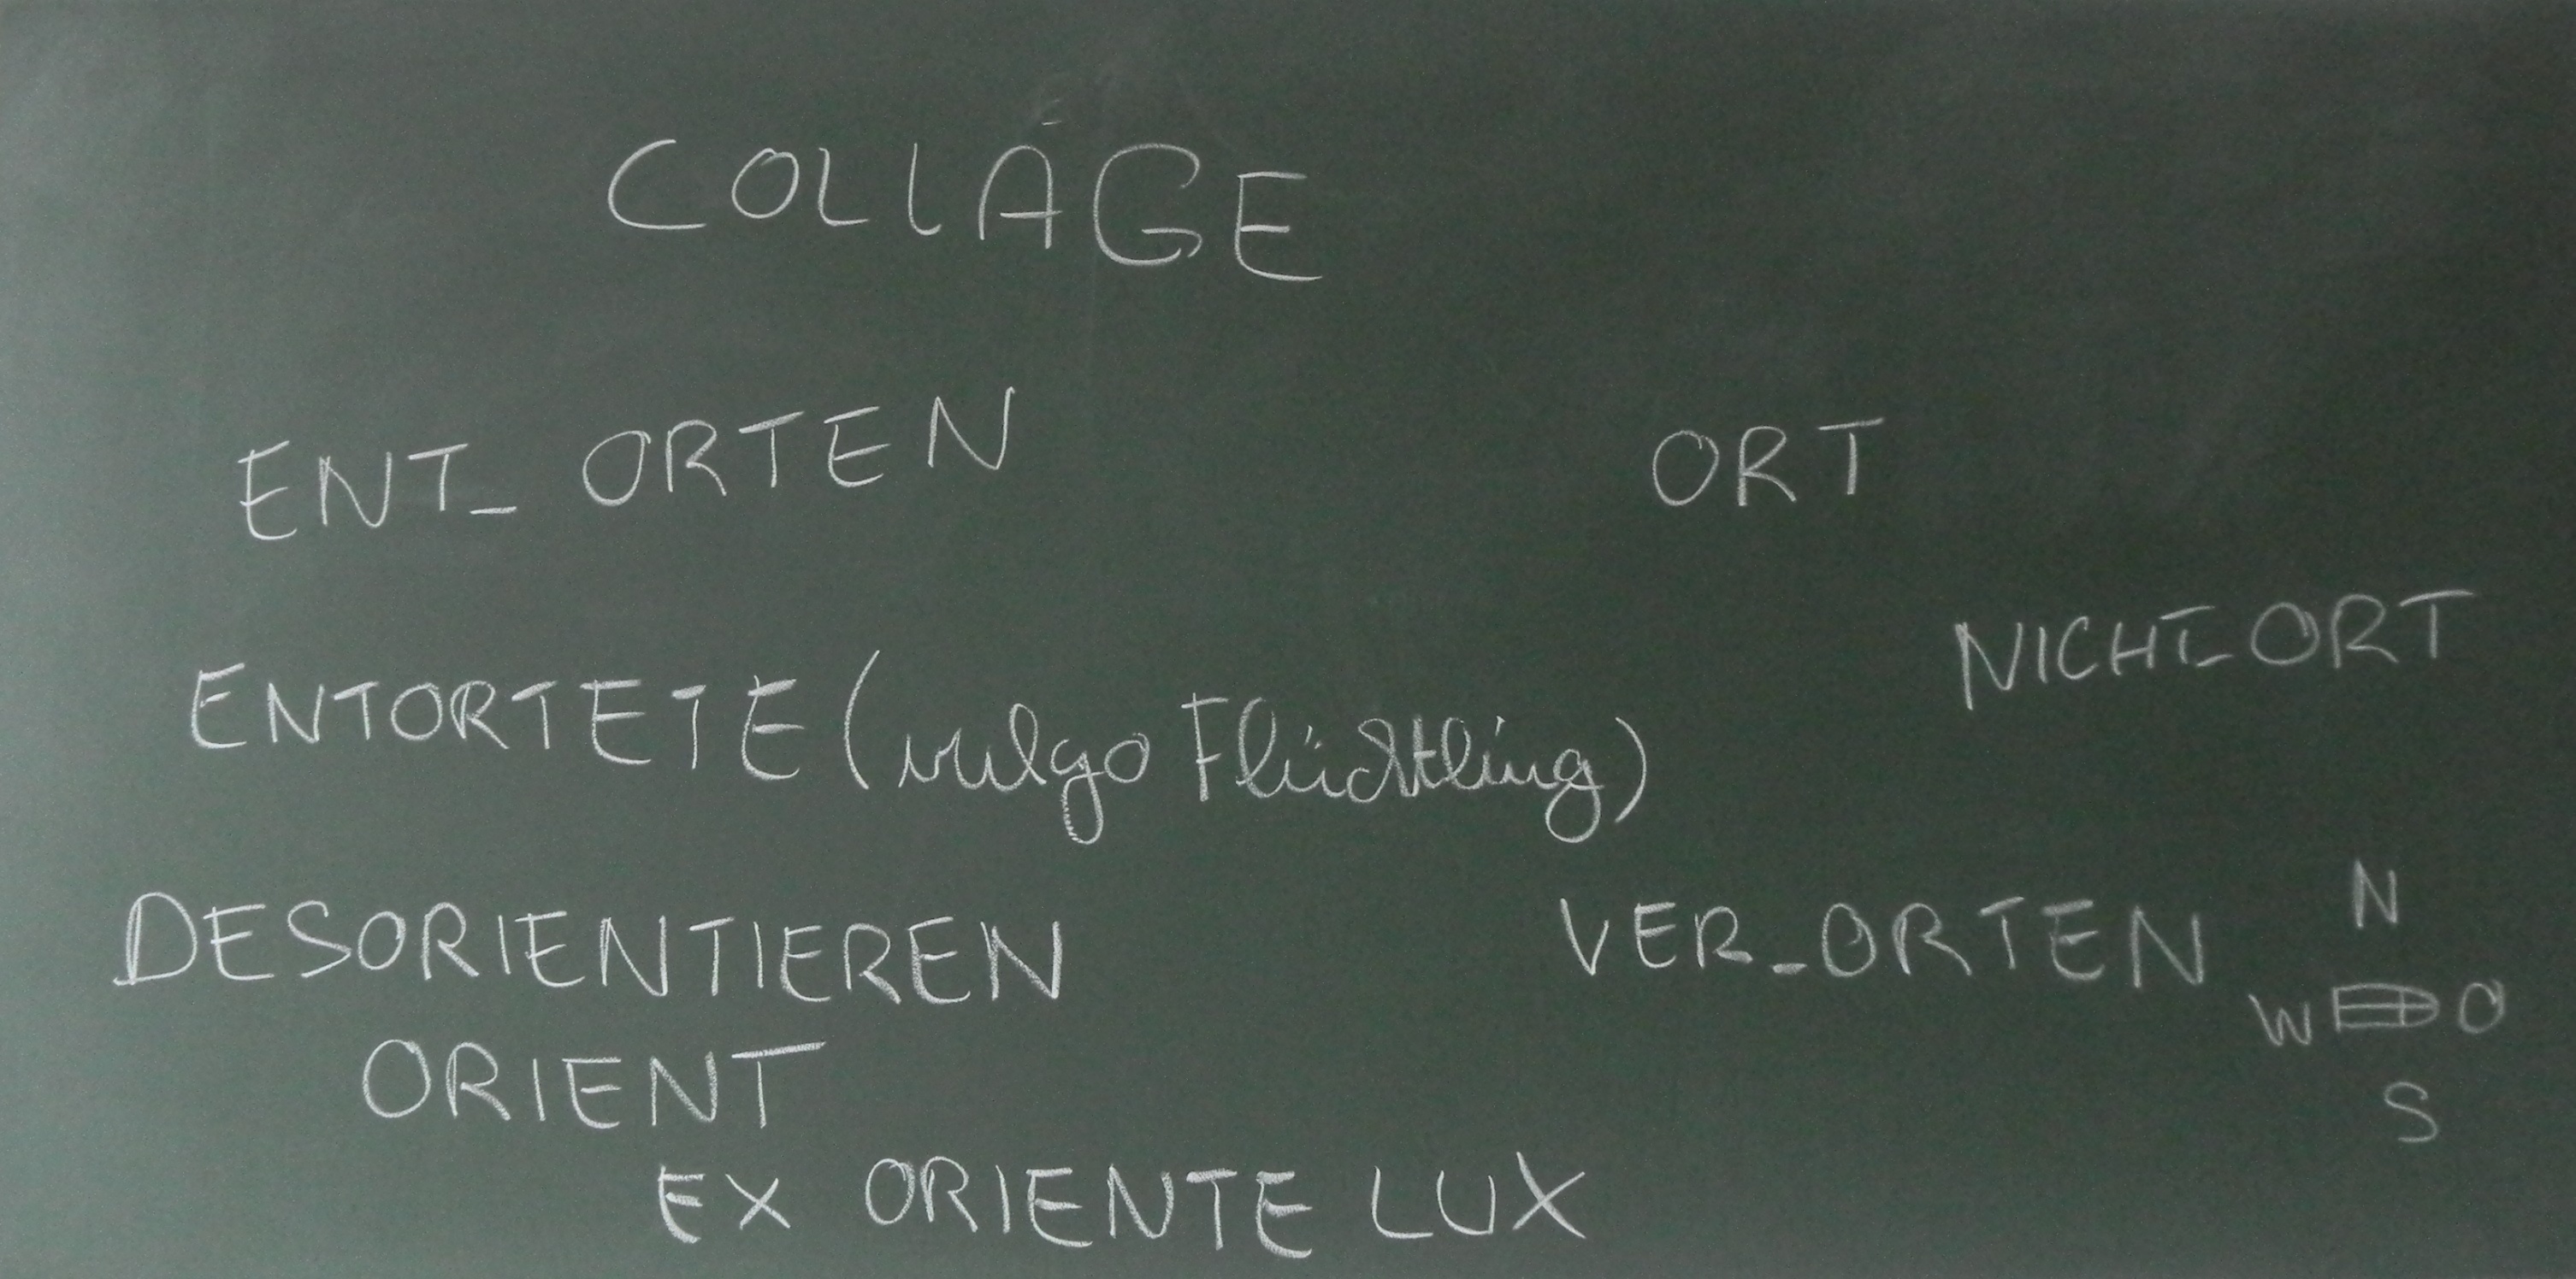 COLLAGE
ENT_ORTEN
ORT
NICHT_ORT
ENTORTETE (vulgo Flüchtling)
DESORIENTIEREN
VER_ORTEN
N
W O
S
ORIENT
EX ORIENTE LUX